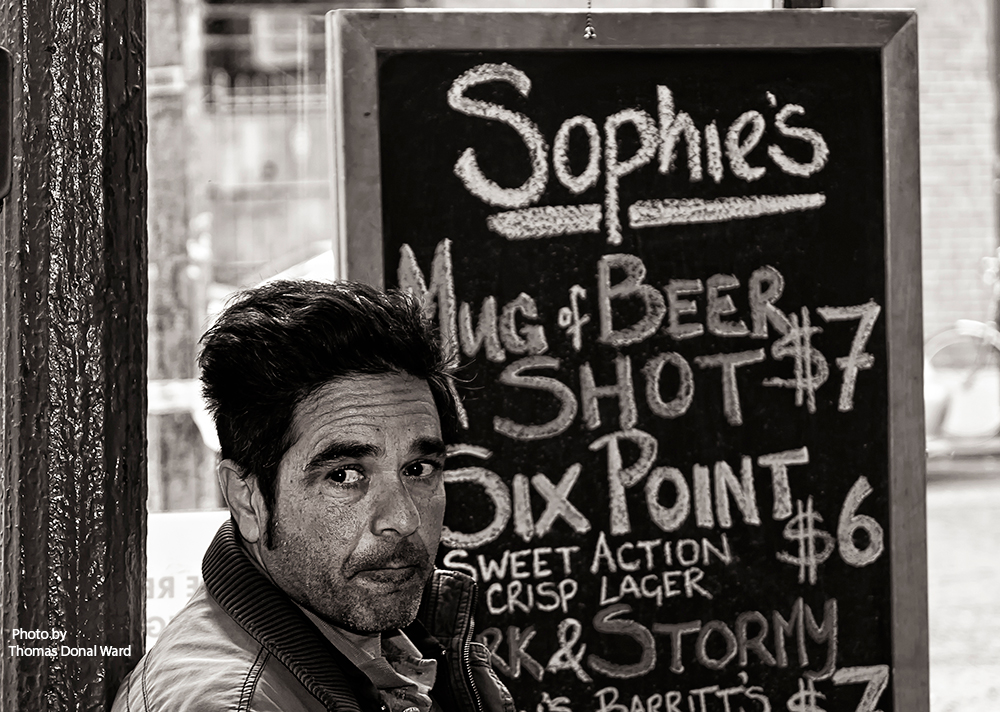 Sophie's
Mug of Beer
Shot $7
Six Point
$6
Sweet Action
Crisp Lager
rk & Stormy
Barritt's $7
Photo by
Thomas Donal Ward